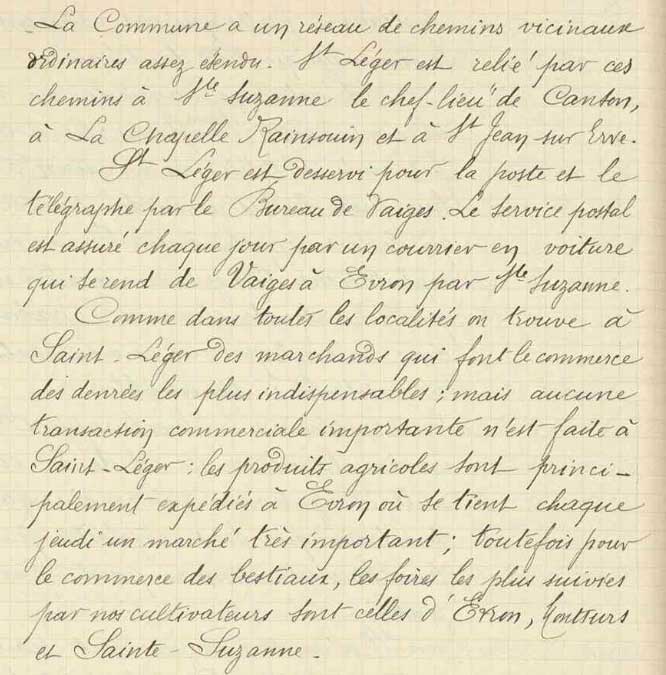 La Commune a un réseau de chemins vicinaux
ordinaires assez étendu. St Léger est relié par ces
chemins à Ste Suzanne le chef-lieu de Canton,
à La Chapelle Rainsouin et à St Jean sur Erve.
St Léger est desservi pour la poste et le
télégraphe par le Bureau de Vaiges. Le service postal
est assuré chaque jour par un courrier en voiture
qui se rend de Vaiges à Evron par Ste Suzanne.
Comme dans toutes les localités on trouve à
Saint-Léger des marchands qui font le commerce
des denrées les plus indispensables ; mais aucune
transaction commerciale importante n'est faite à
Saint-Léger : les produits agricoles sont princi-
palement expédiés à Evron où se tient chaque
jeudi un marché très important ; toutefois pour
le commerce des bestiaux, les foires les plus suivies
par nos cultivateurs sont celles d'Evron, Montsurs
et Sainte-Suzanne.